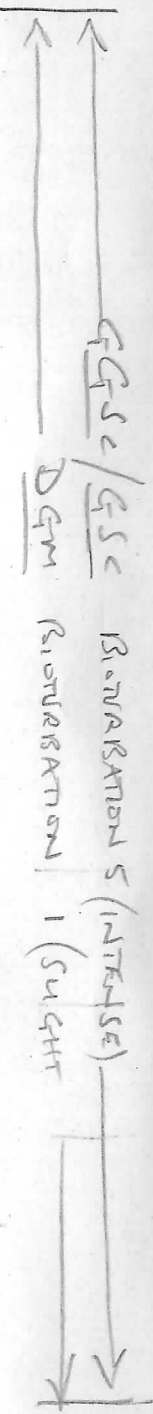 GGSC/GSC BIOTURBATION 5 (INTENSE)
DGM BIOTURBATION 1 (SLIGHT